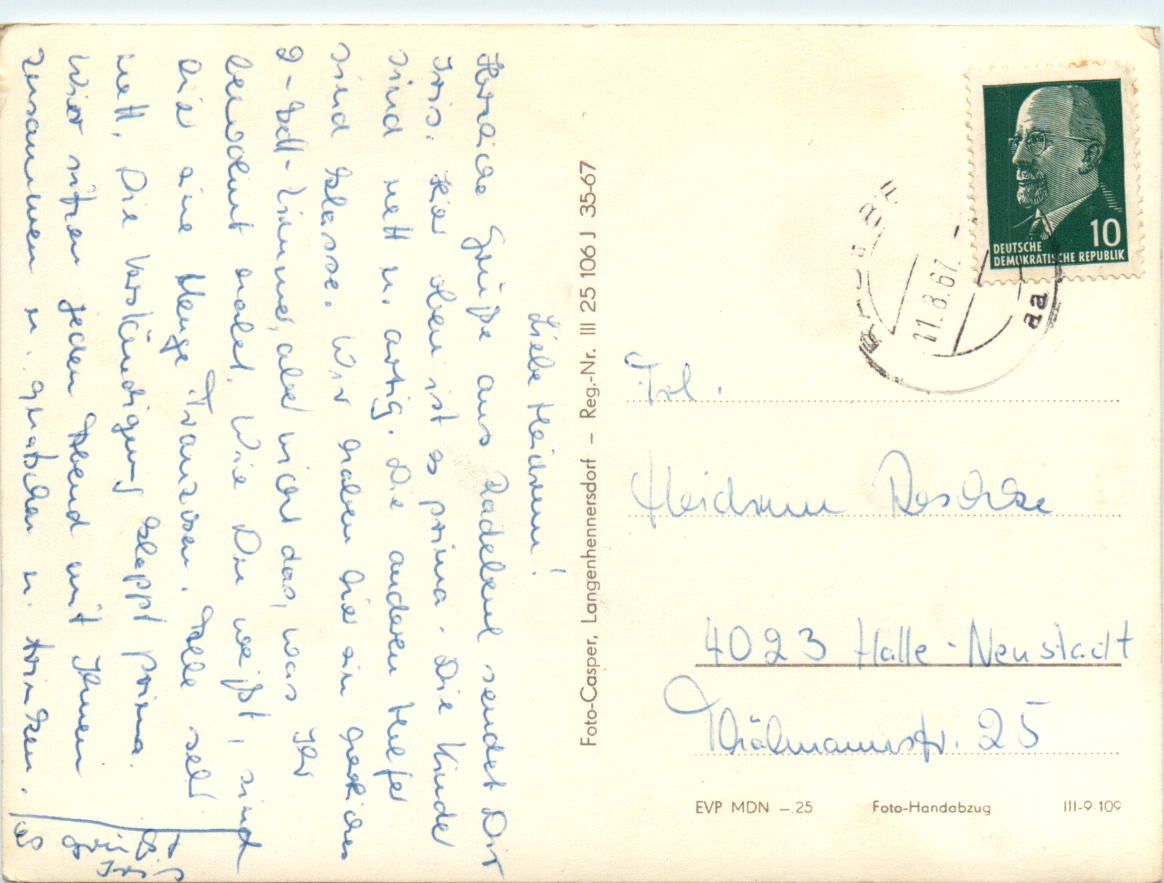 Liebe Heidrun!
Herzliche Grüße aus Radebeul sendet Dir
Iris. Hier oben ist es prima. Die Kinder
sind nett u. artig. Die anderen Helfer
sind Klasse. Wir haben hier ein herrliches
2-Bett-Zimmer, aber nicht das, was Ihr
bewohnt habt. Wie Du weißt, sind
hier eine Menge Franzosen. Alle sehr
nett. Die Verständigung klappt prima.
Wir sitzen jeden Abend mit Ihnen
zusammen u. quatschen u. trinken.
Iris
Foto-Casper, Langenhennersdorf – Reg.-Nr. III 25 106 J 35-67
10
DEUTSCHE
DEMOKRATISCHE REPUBLIK
11.8.67
aa
Frl.
Heidrun Reschke
4023 Halle-Neustadt
Thälmannstr. 25
EVP MDN –.25 Foto-Handabzug III-9-109